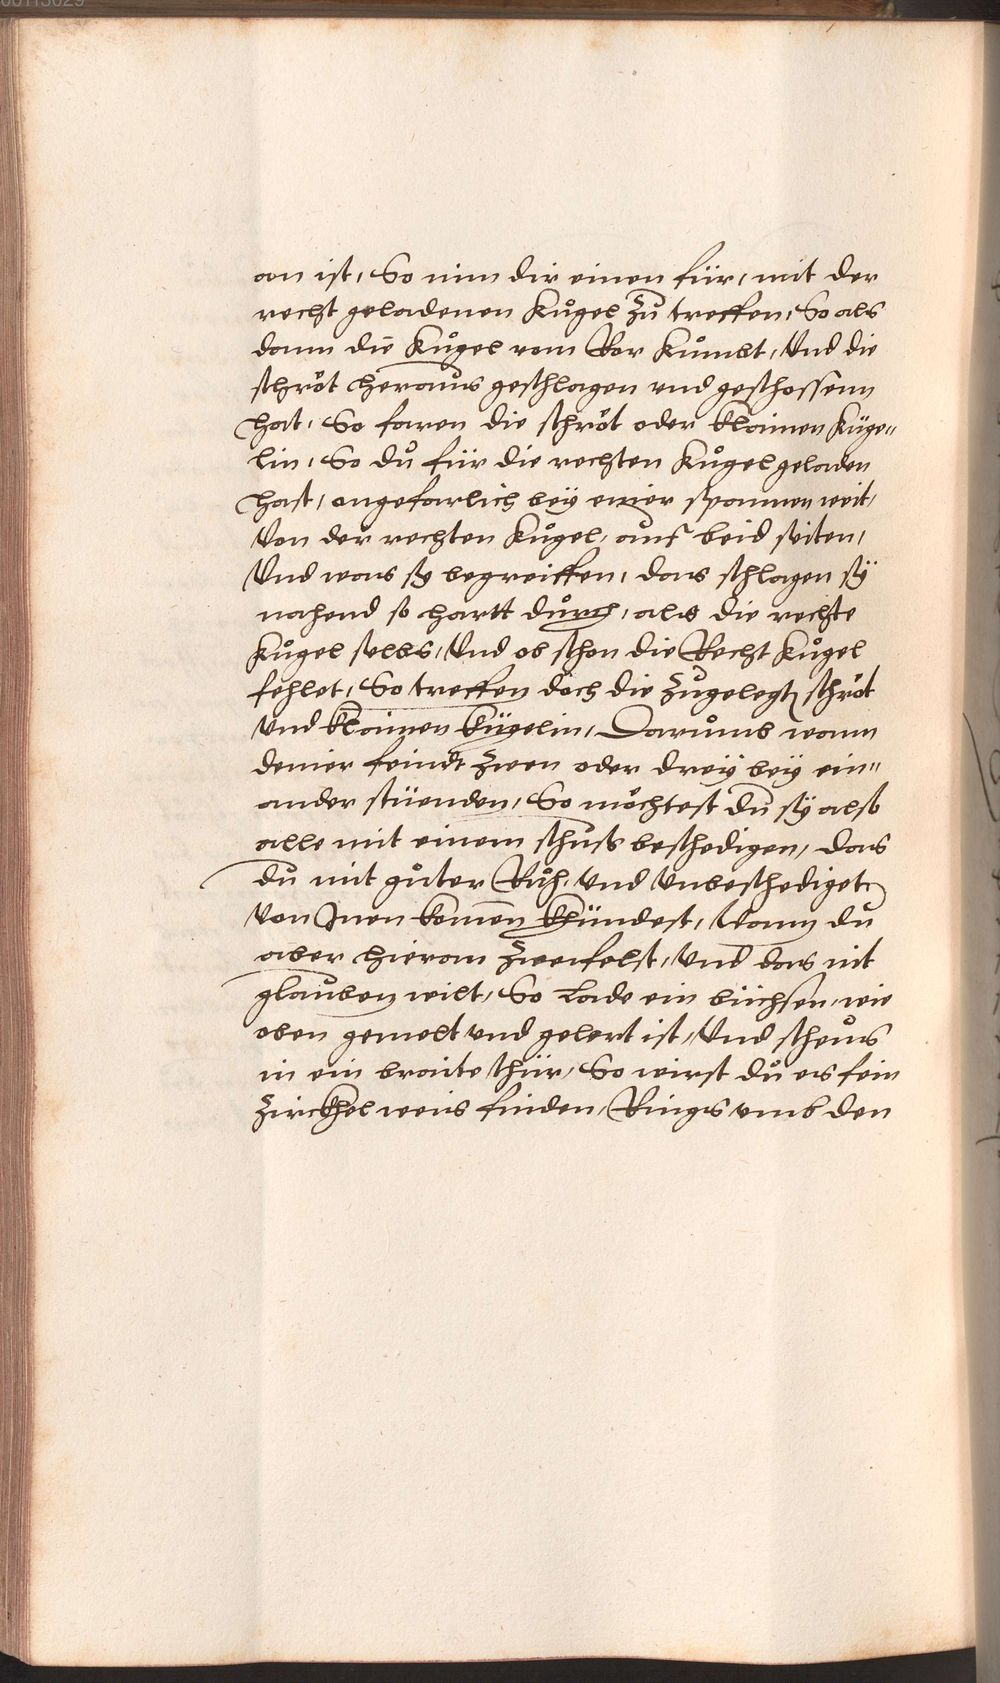 an ist, So nim dir einen für, mit der
recht geladenen Kůgel zů treffen, So als
dann die Kůgel vom Ror kůmbt, Und die
schröt heraus geschlagen vnd geschossenn
hat, So faren die schröt oder klainen Küge„
lin, So dů für die rechten Kůgel geladen
hast, ongefarlich bey einer spannen weit,
Von der rechten Kůgel, auf beid seiten,
Und was sy begreiffen, das schlagen sÿ
nahend so hartt důrch, als die rechte
Kůgel selbs, Und ob schon die Recht Kůgel
fehlet, So treffen doch die zůgelegt schröt
vnd klainen kügelin, Darůmb wann
deiner feindt zwen oder dreÿ beÿ ein„
ander stüenden, So möchtest dů sÿ also
alle mit einem schus beschedigen, das
dů mit gůter Růh, vnd Unbeschediget
Von Inen komen khündest, Wann du
aber hieran zweifelst, Und das nit
glauben wilt, So Lade ein büchsen, wie
oben gemelt vnd gelert ist, Und scheus
in ein braite thür, So wirst dů es fein
zirckhel weis finden, Rings vmb den
00113029